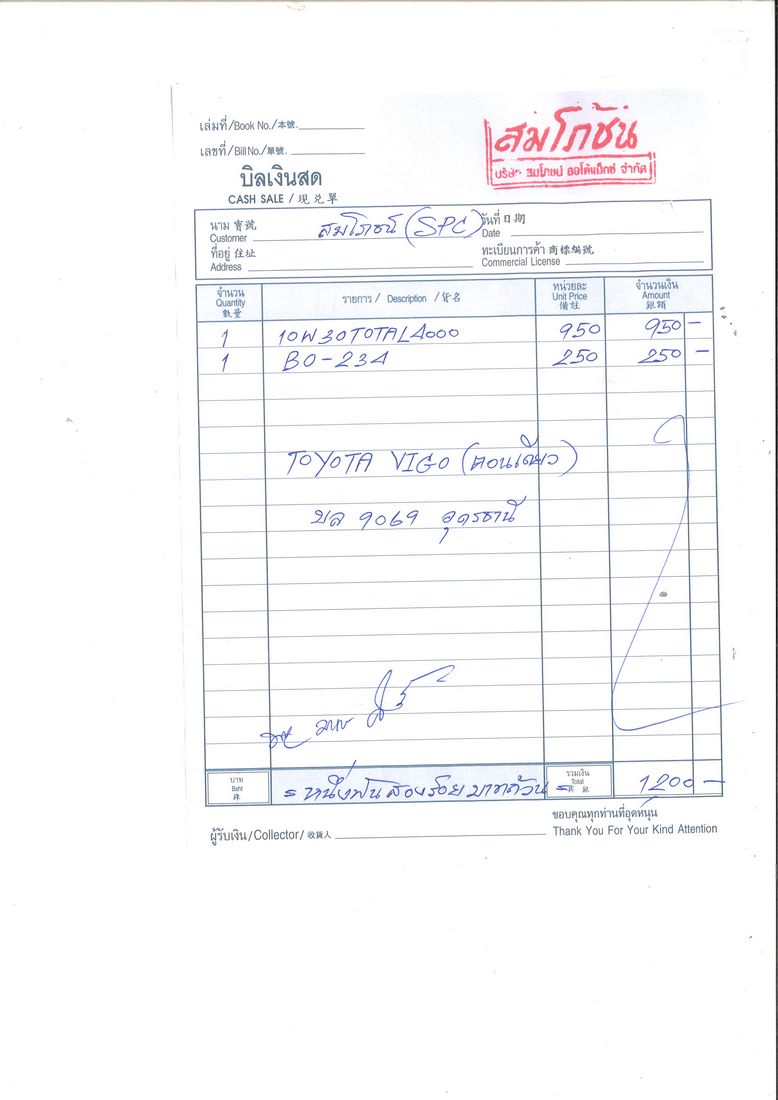 เล่มที่/Book No./本號.
เลขที่/Bill No./單號.
สมโภชน์
บริษัท สมโภชน์ ออโต้แม็กซ์ จำกัด
บิลเงินสด
CASH SALE / 現兌單
นาม 寳號 Customer สมโภชน์ (SPC) วันที่ 日期 Date
ที่อยู่ 住址 Address ทะเบียนการค้า 商標編號 Commercial License
จำนวน Quantity 數量 รายการ / Description / 貨名 หน่วยละ Unit Price 備註 จำนวนเงิน Amount 銀額
1 10W30 TOTAL 4000 950 950 -
1 BO-234 250 250 -
TOYOTA VIGO (ตอนเดียว)
บล 9069 อุดรธานี
บาท Baht 銖 = หนึ่งพันสองร้อยบาทถ้วน = รวมเงิน Total 共銀 1200 -
ขอบคุณทุกท่านที่อุดหนุน
ผู้รับเงิน/Collector/ 收貨人 Thank You For Your Kind Attention